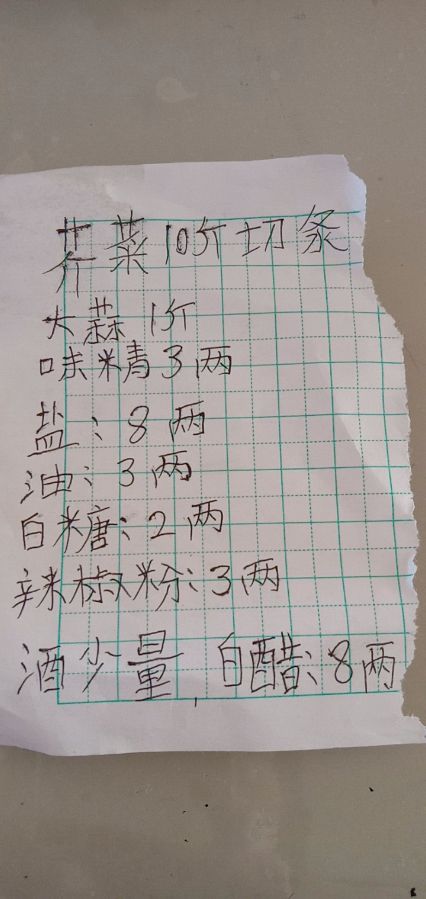 芥菜10斤切条
大蒜1斤
味精3两
盐:8两
油:3两
白糖:2两
辣椒粉:3两
酒少量,白醋:8两